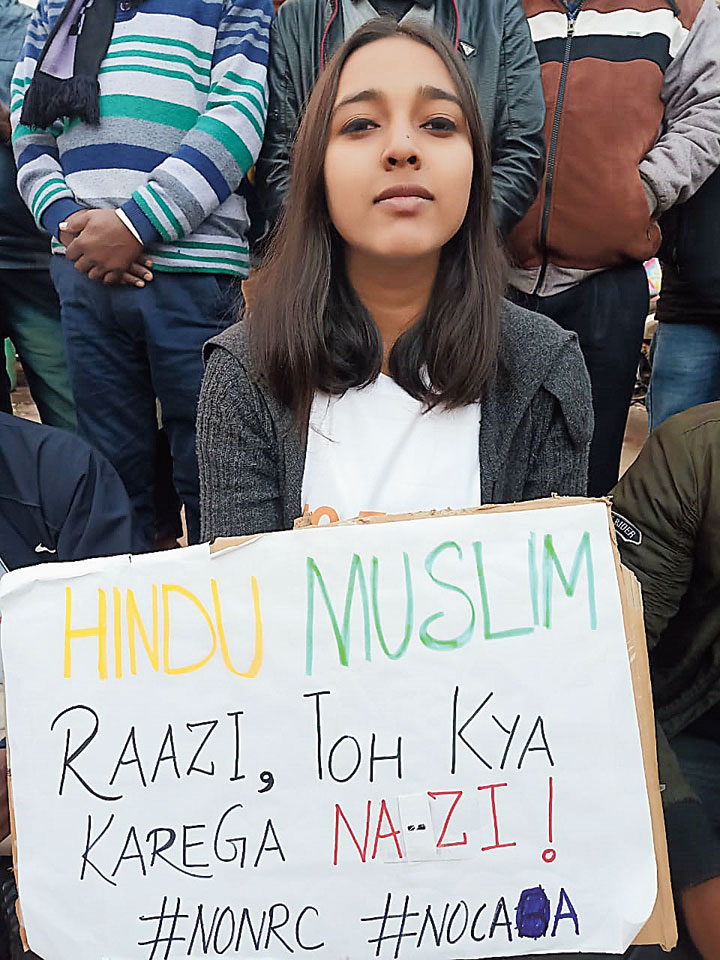 RIDER
HINDU MUSLIM
RAAZI, TOH KYA
KAREGA NA--ZI!
#NONRC #NOCAA